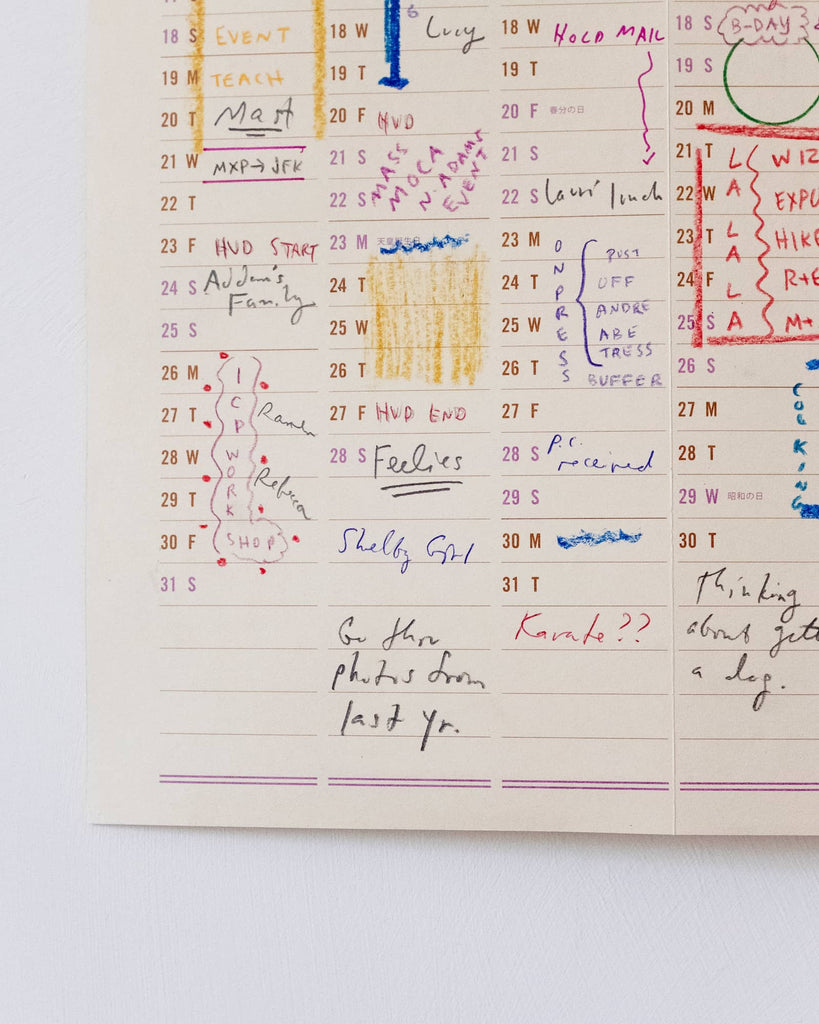 18 S EVENT
19 M TEACH
20 T Mast
21 W MXP→JFK
22 T
23 F HVD START
24 S Addam's
Family
25 S
26 M I
27 T CP Ramen
28 W WO Rebecca
29 T RK
30 F SHOP
31 S
18 W Lucy
19 T
20 F HVD
21 S MASS
MOCA
22 S N. ADAMS
EVENT
23 M 天皇誕生日
24 T
25 W
26 T
27 F HVD END
28 S Feelies
Shelby
Go thru
photos from
last yr.
18 W HOLD MAIL
19 T
20 F 春分の日
21 S
22 S Lauri lunch
23 M ON PUST
24 T PR OFF
ANDRE
25 W E ABE
S TRESS
26 T S BUFFER
27 F
28 S P.C.
received
29 S
30 M
31 T
Karate??
18 S B-DAY
19 S
20 M
21 T L WIZ
22 W A EXPO
23 T LA HIKE
24 F L R+E
25 S A M+
26 S
27 M COL
28 T KIN
29 W 昭和の日 G
30 T
Thinking
about gett
a dog.